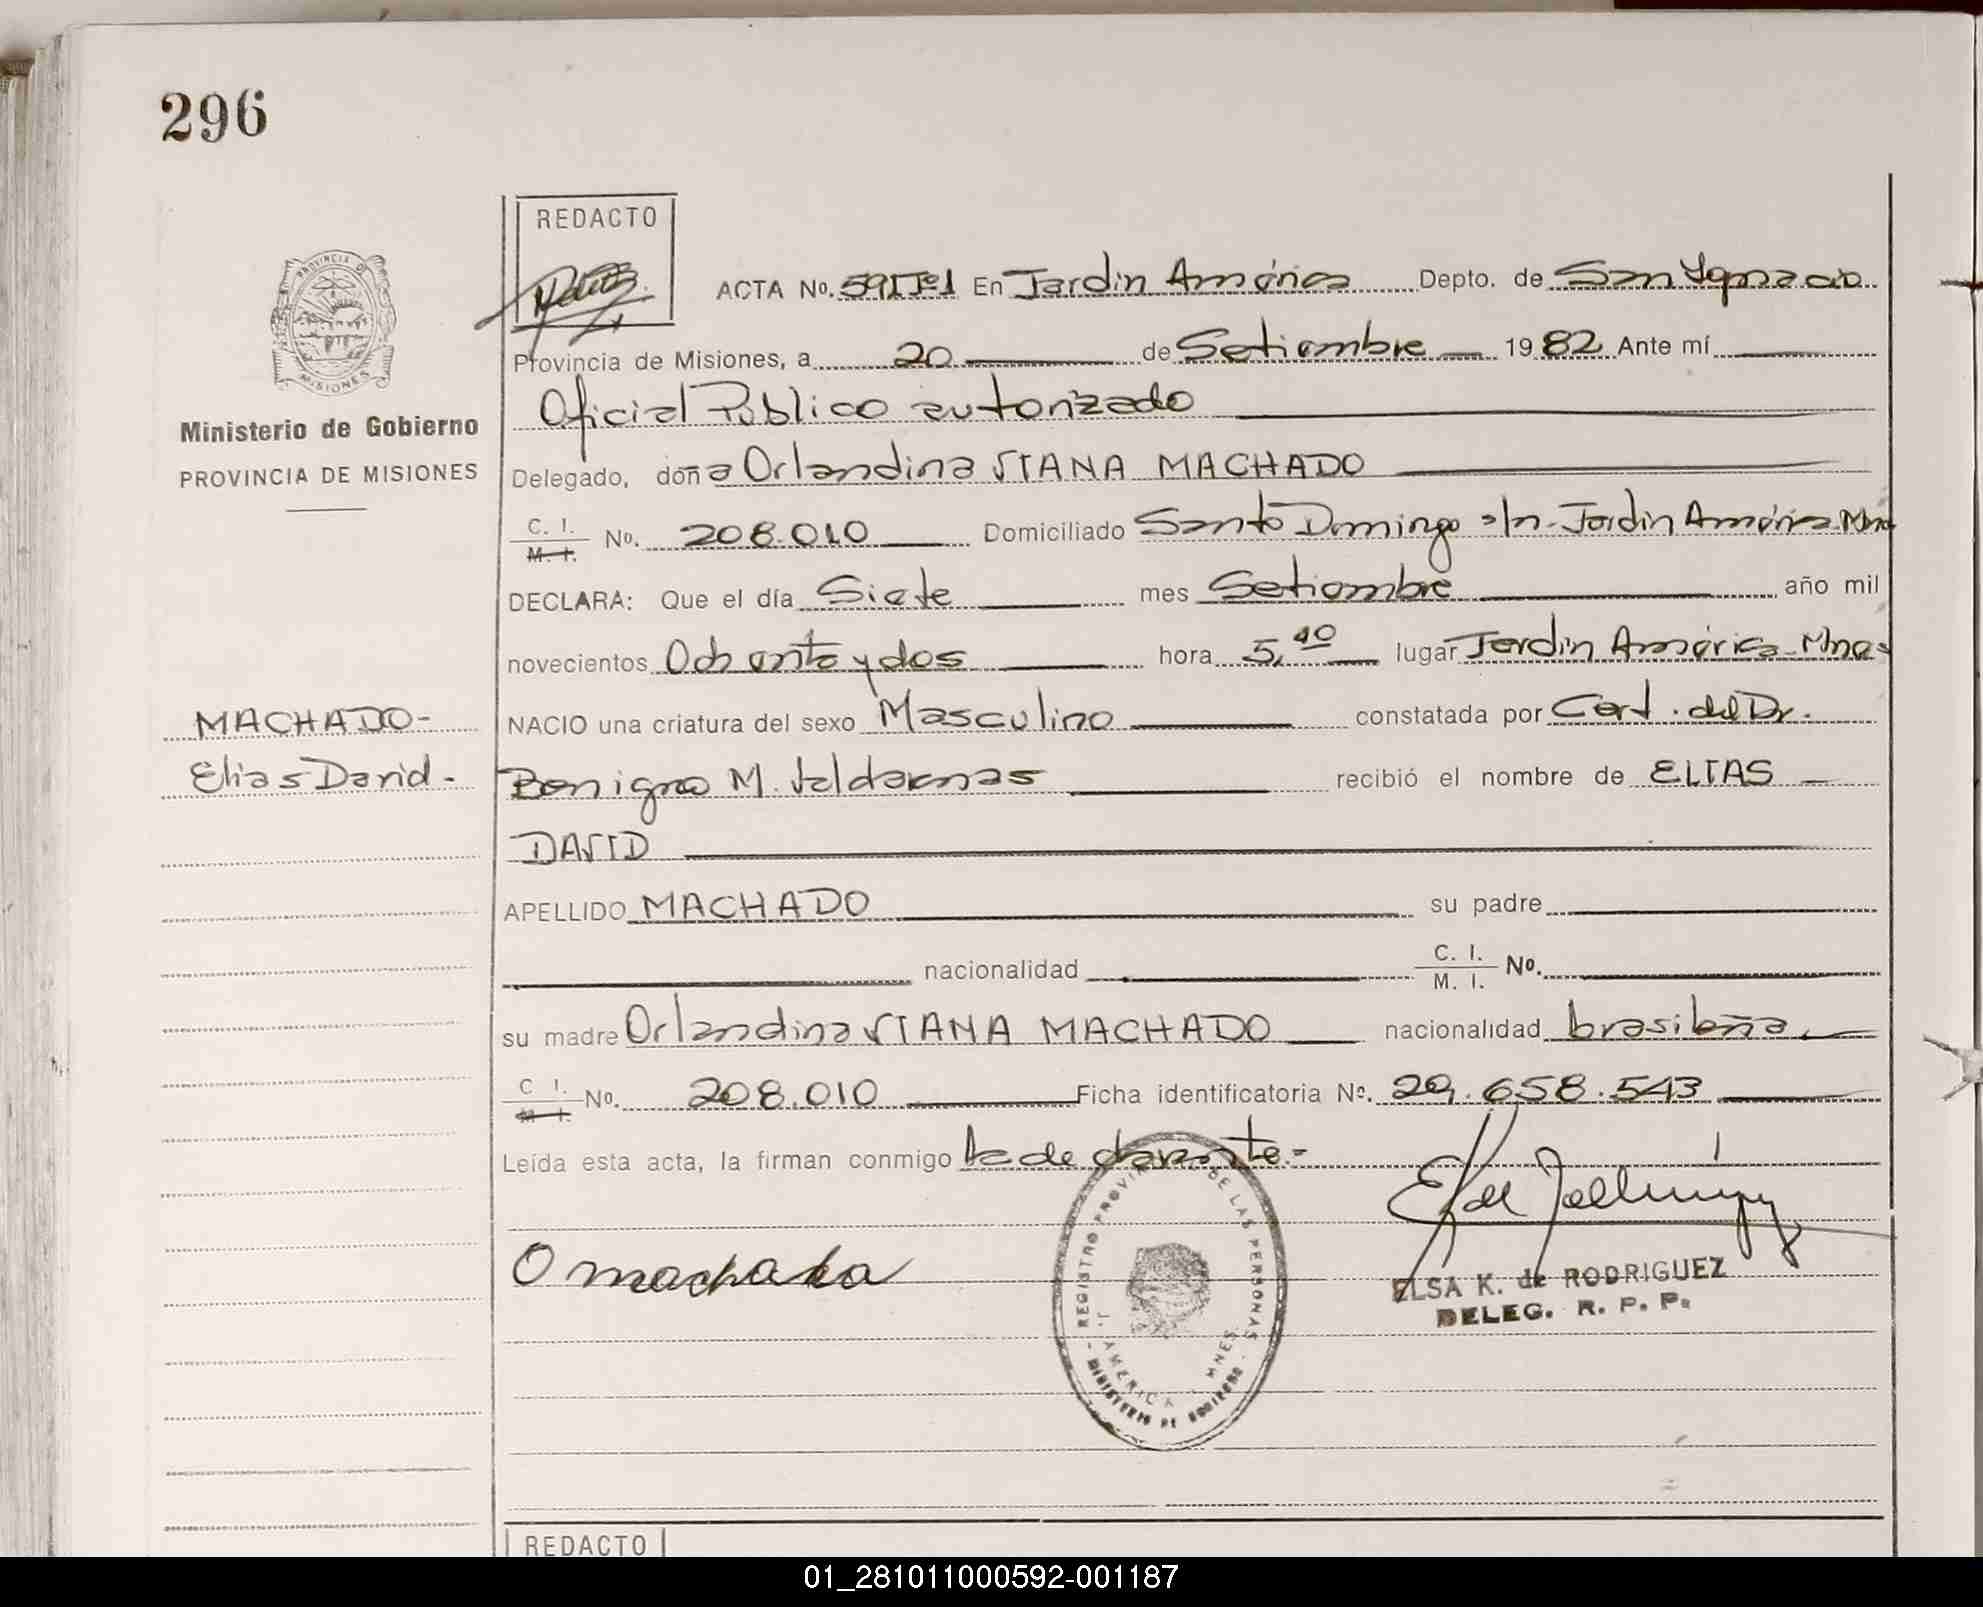 296
REDACTO
ACTA No. 591 Tº1 En Jardin América Depto. de San Ignacio
Provincia de Misiones, a 20 de Setiembre 1982 Ante mí
Oficial Publico autorizado
Ministerio de Gobierno
PROVINCIA DE MISIONES
Delegado, doña Orlandina VIANA MACHADO
C. I. M. I. No. 208.010 Domiciliado Santo Domingo s/n - Jardin América Mnes
DECLARA: Que el día Siete mes Setiembre año mil
novecientos Ochenta y dos hora 5,40 lugar Jardin América - Mnes
MACHADO-
Elias David-
NACIO una criatura del sexo Masculino constatada por Cert. del Dr.
Benigno M. recibió el nombre de ELIAS
DAVID
APELLIDO MACHADO su padre
nacionalidad C. I. M. I. Nº.
su madre Orlandina VIANA MACHADO nacionalidad brasileña
C. I. M. I. No. 208.010 Ficha identificatoria Nº. 29.658.543
Leída esta acta, la firman conmigo la declarante.-
O machado
REGISTRO PROVINCIAL DE LAS PERSONAS
J. AMERICA - MNES.
MINISTERIO DE GOBIERNO
ELSA K. de RODRIGUEZ
DELEG. R. P. P.
REDACTO
01_281011000592-001187